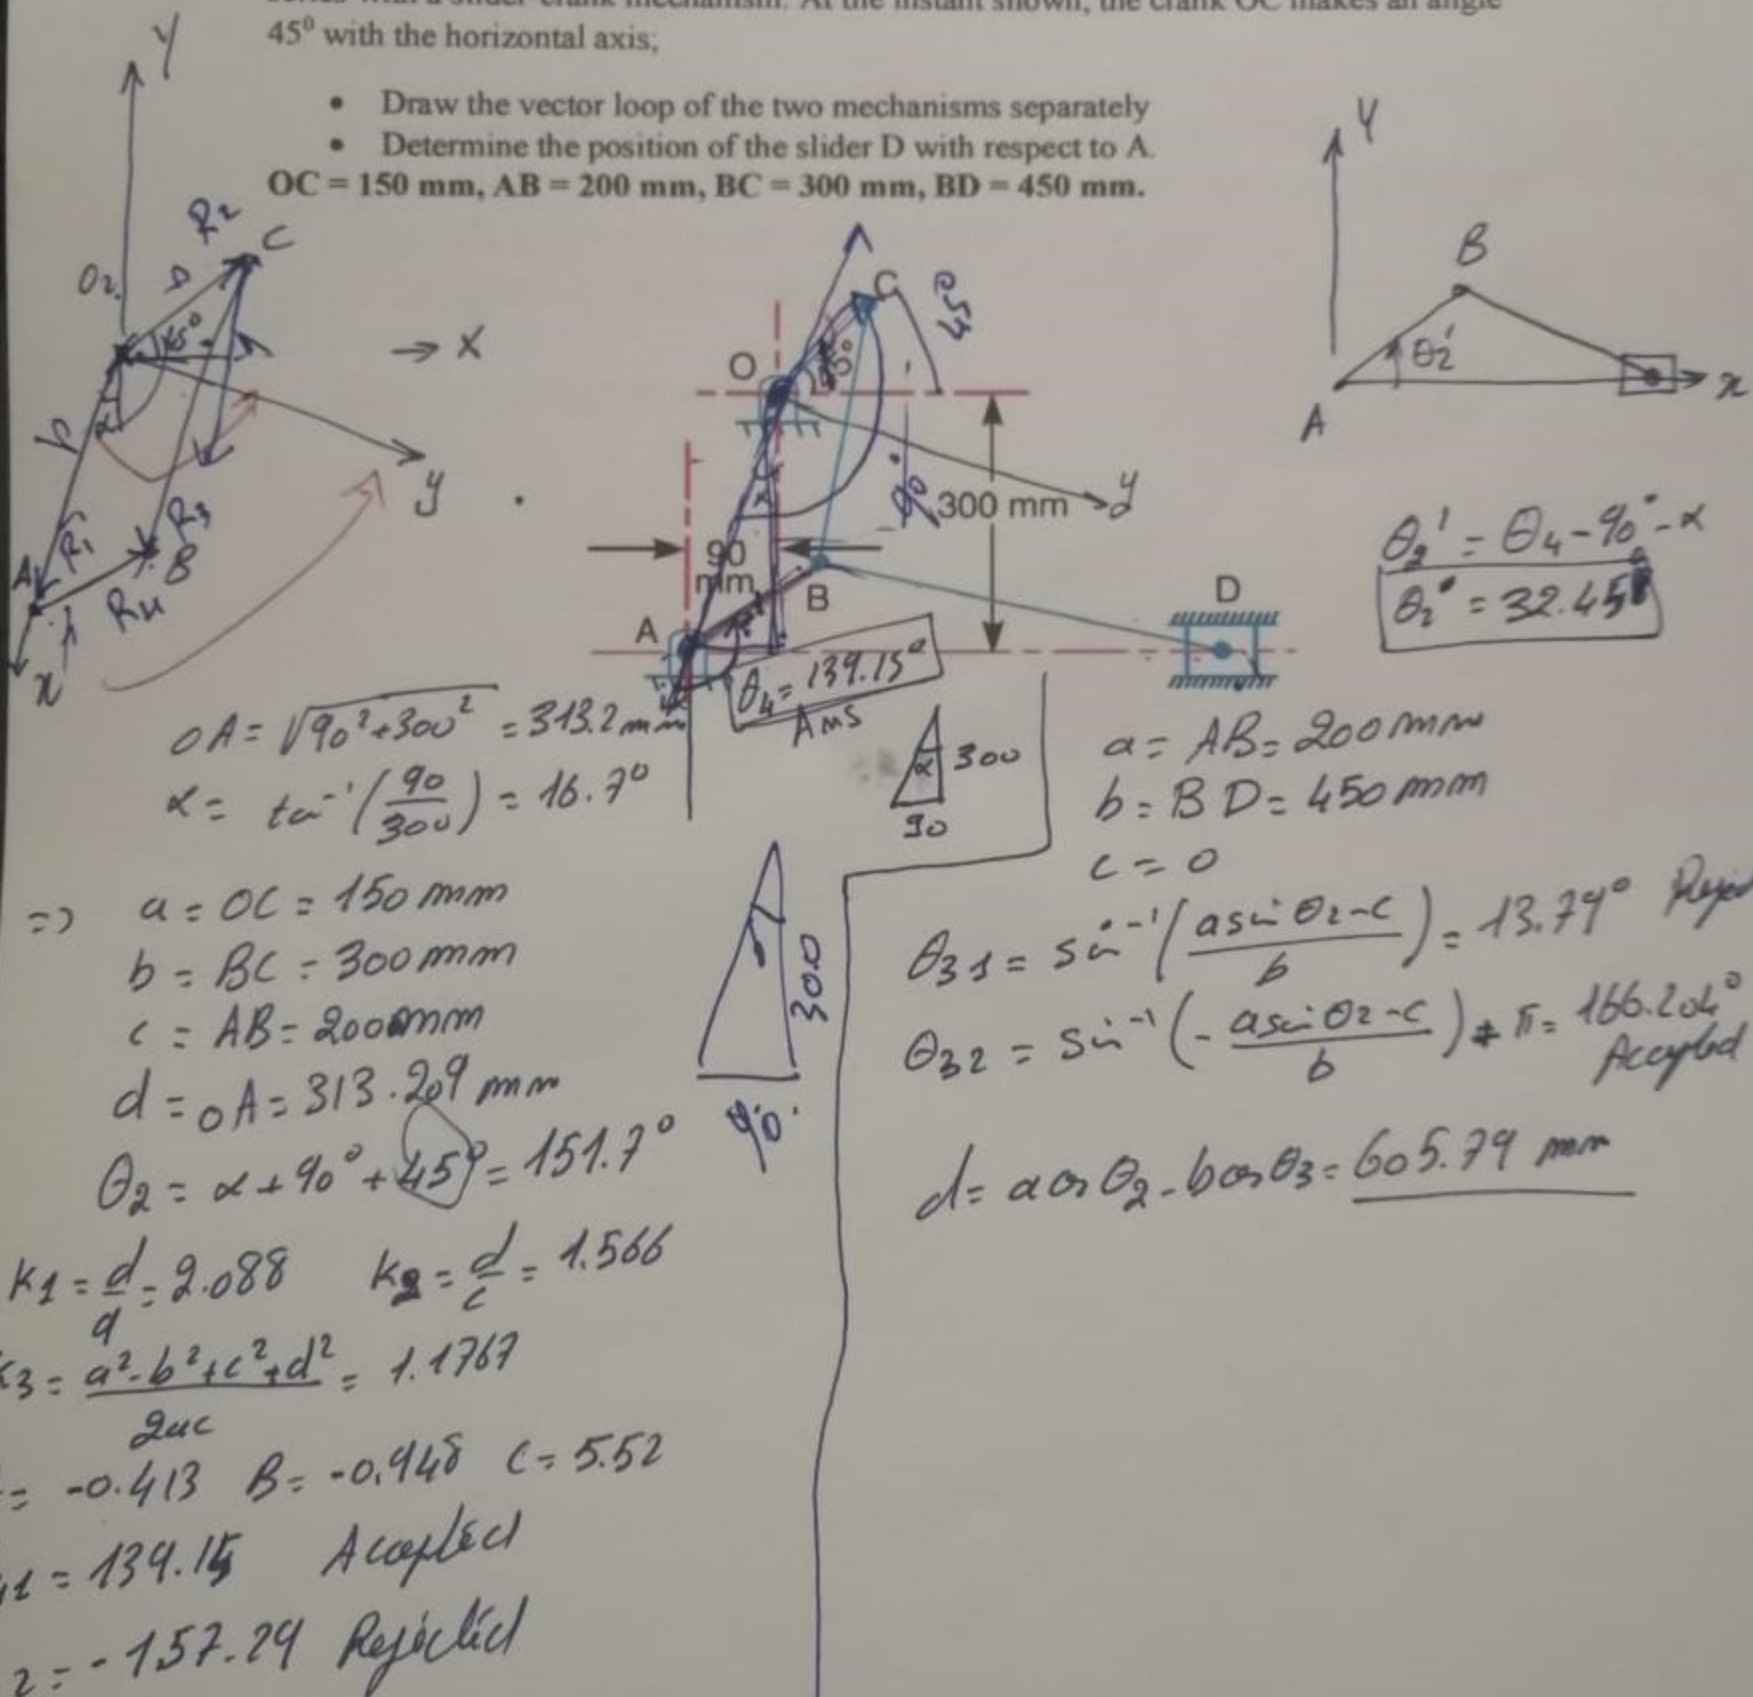 45⁰ with the horizontal axis;
• Draw the vector loop of the two mechanisms separately
• Determine the position of the slider D with respect to A.
OC = 150 mm, AB = 200 mm, BC = 300 mm, BD = 450 mm.
Y
R2
C
O2
a
45°
x
y
R1
R3
A
B
R4
x
C
45°
O
45°
90
y
300 mm
90
mm
B
A
D
θ4 = 139.15°
Ans
Y
B
θ2'
A
x
θ2' = θ4 - 90° - α
θ2' = 32.45
OA = √90² + 300² = 313.2 mm
α = tan⁻¹(90/300) = 16.7°
α 300
90
=> a = OC = 150 mm
b = BC = 300 mm
c = AB = 200 mm
d = OA = 313.209 mm
θ2 = α + 90° + 45° = 151.7°
300
90
K1 = d/a = 2.088 K2 = d/c = 1.566
K3 = a² - b² + c² + d² / 2ac = 1.1767
= -0.413 B = -0.948 C = 5.52
1 = 139.15 Accepted
2 = -157.29 Rejected
a = AB = 200 mm
b = BD = 450 mm
c = 0
θ31 = sin⁻¹(a sin θ2 - c / b) = 13.79°
θ32 = sin⁻¹(- a sin θ2 - c / b) + π = 166.204°
Accepted
d = a cos θ2 - b cos θ3 = 605.79 mm